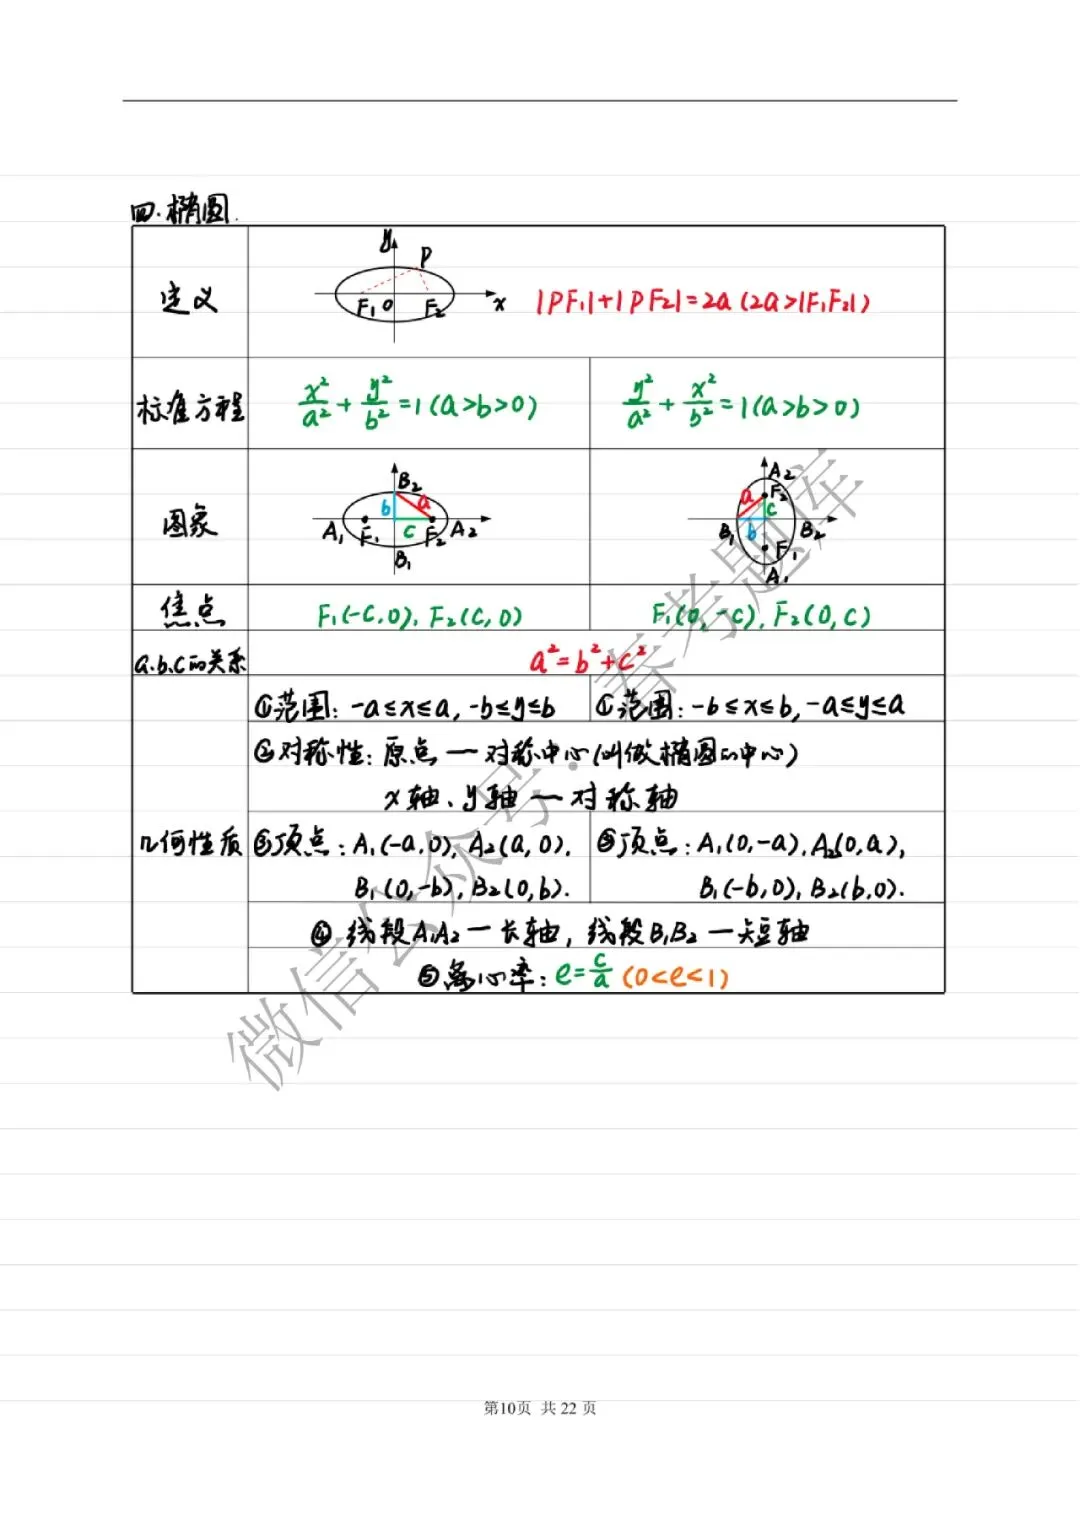 四.椭圆.
定义
y
P
F₁ O F₂ x
|PF₁|+|PF₂|=2a (2a>|F₁F₂|)
标准方程
x²/a² + y²/b² =1 (a>b>0)
y²/a² + x²/b² =1 (a>b>0)
图象
B₂
b a
A₁ F₁ c F₂ A₂
B₁
A₂
a F₂
c
B₁ b B₂
F₁
A₁
焦点
F₁(-c,0), F₂(c,0)
F₁(0,-c), F₂(0,c)
a.b.c的关系
a²=b²+c²
几何性质
①范围: -a≤x≤a, -b≤y≤b
①范围: -b≤x≤b, -a≤y≤a
②对称性: 原点 — 对称中心(叫做椭圆的中心)
x轴、y轴 — 对称轴
③顶点: A₁(-a,0), A₂(a,0).
B₁(0,-b), B₂(0,b).
③顶点: A₁(0,-a), A₂(0,a),
B₁(-b,0), B₂(b,0).
④ 线段A₁A₂ — 长轴, 线段B₁B₂ — 短轴
⑤离心率: e=c/a (0<e<1)
微信公众号:春考题库
第10页 共 22 页